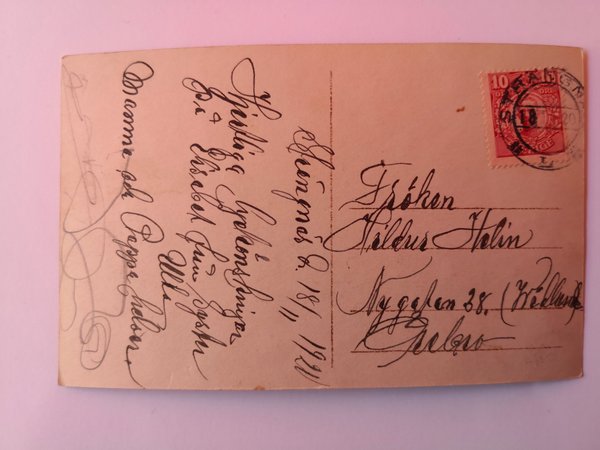 Strengnäs d. 18/11 1920
Hjertliga Lyckönskningar
på Elisabet från Syster
Ulla
Mamma och Pappa helsar
10
STRÄNGNÄS
18
Fröken
Hildur Helin
Nygatan 38.
Örebro